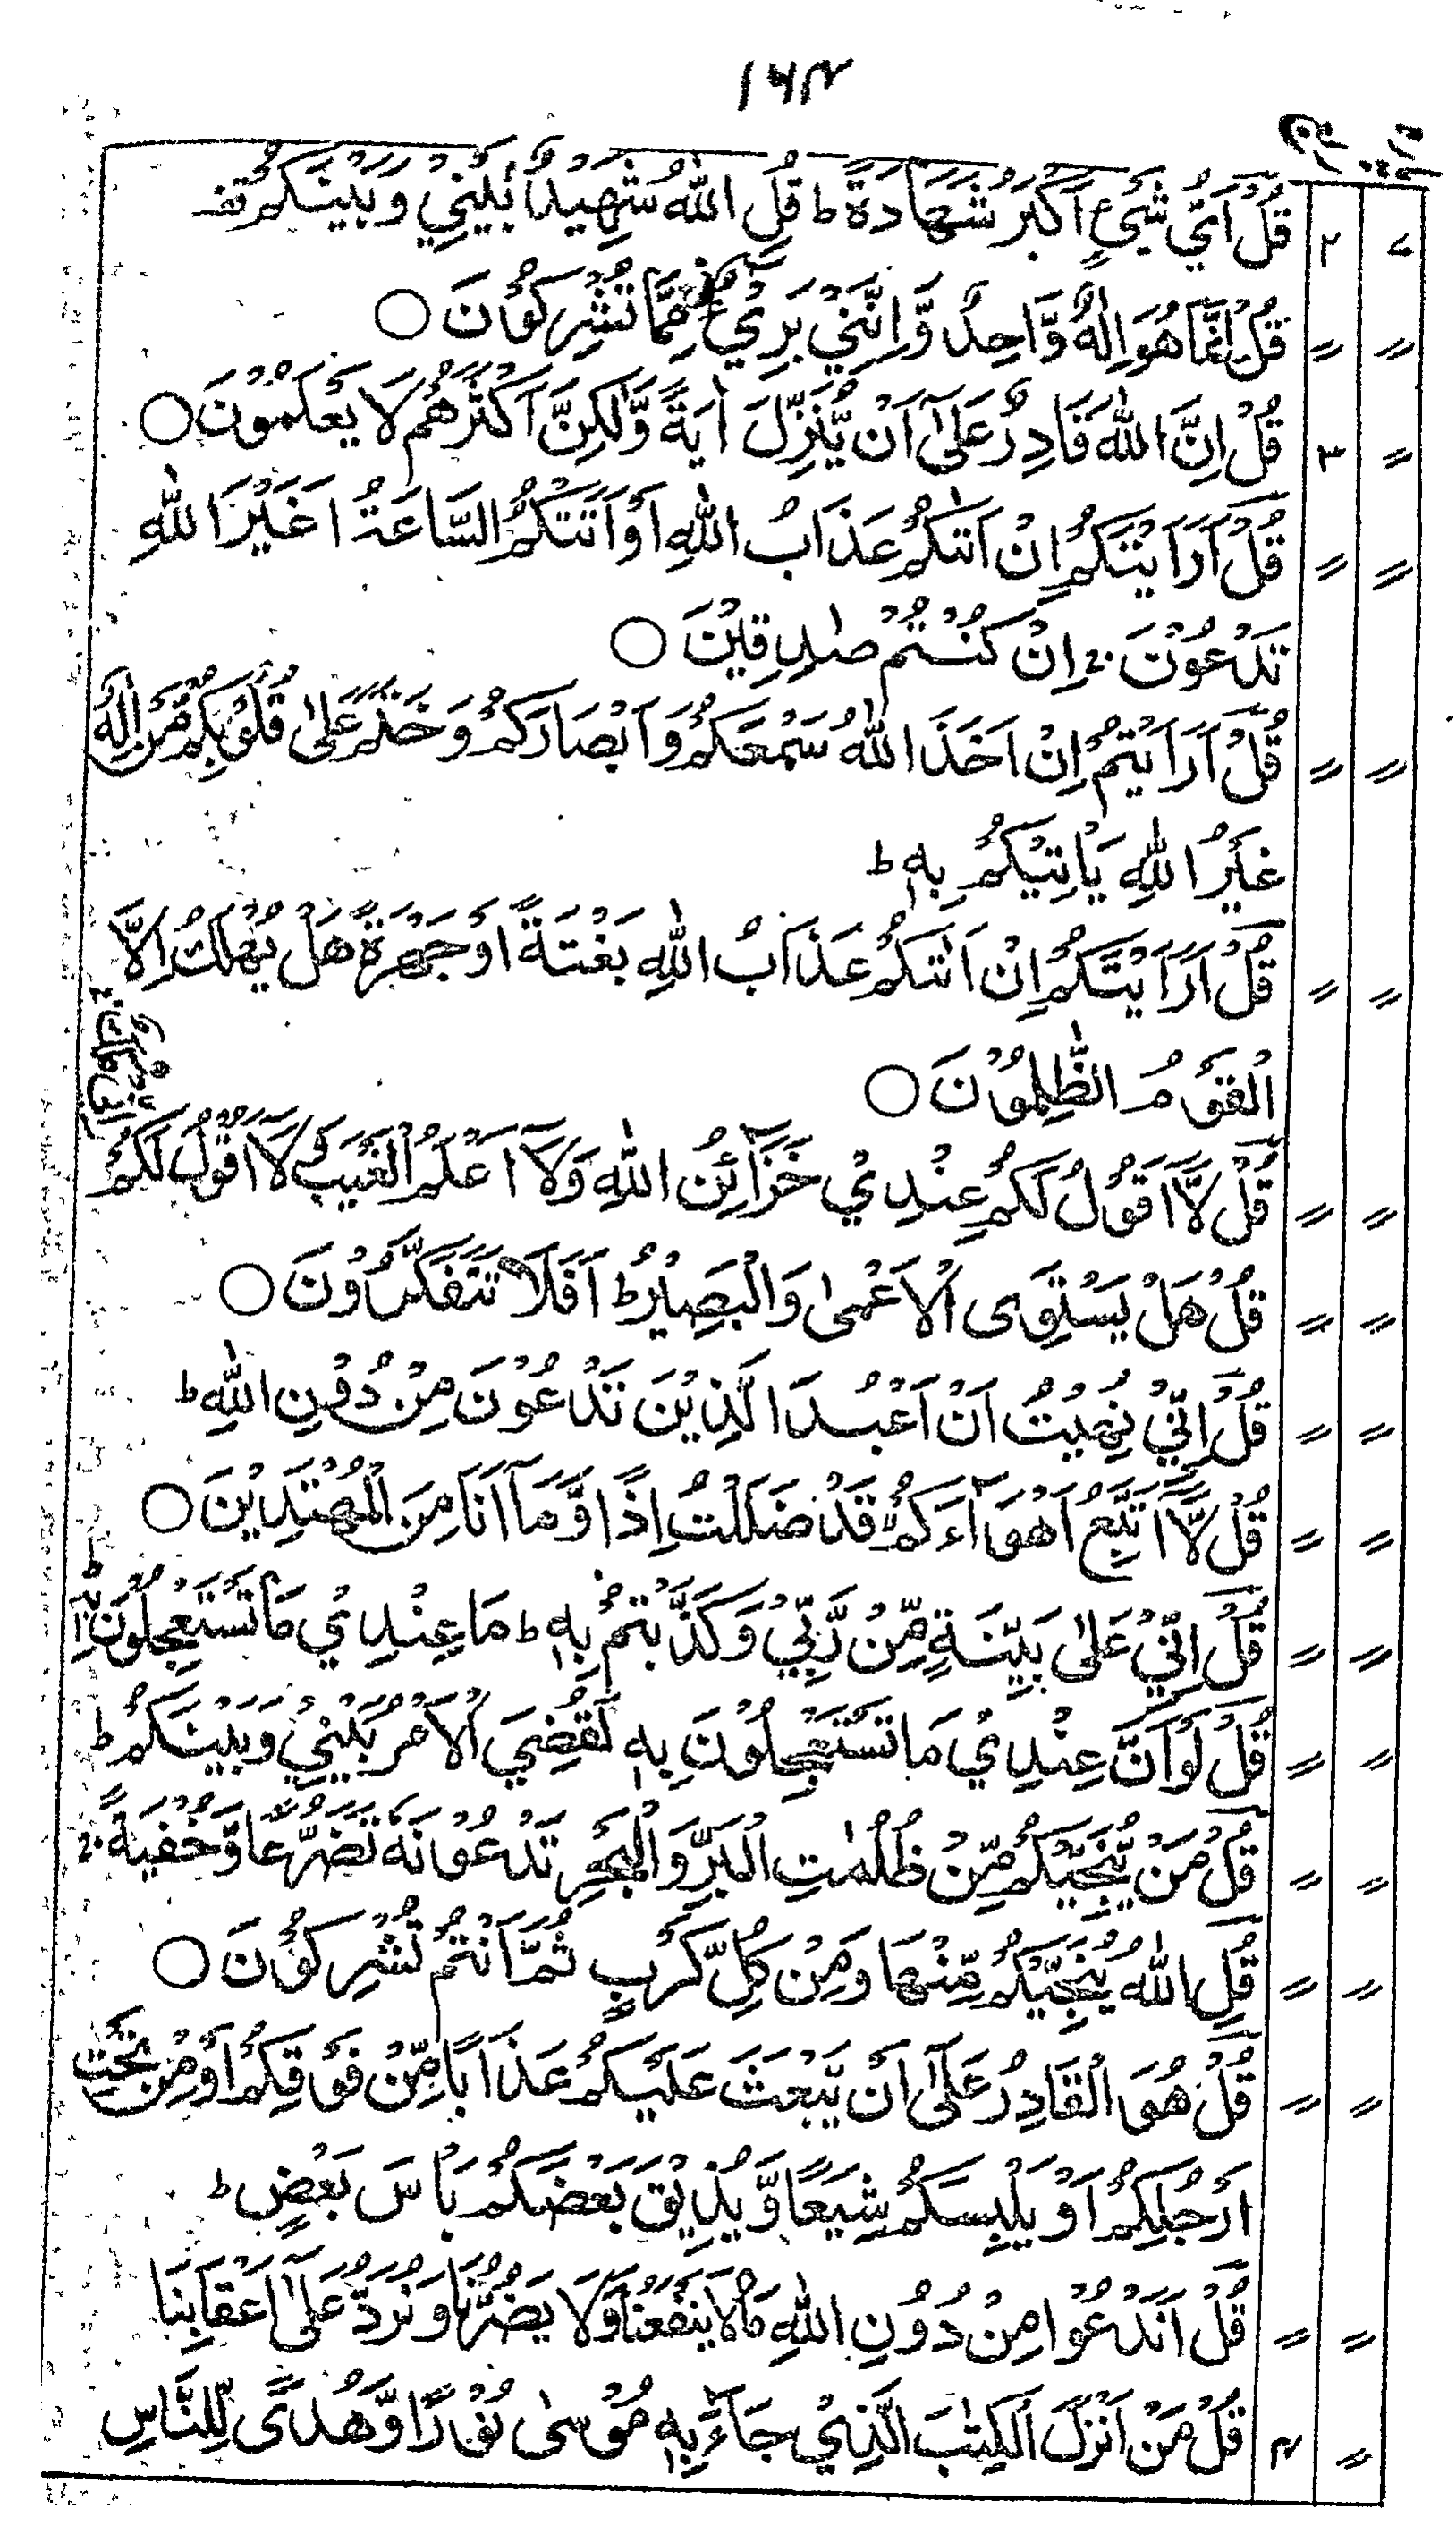 ۱۶۴
قُلْ اَيُّ شَيْءٍ اَكْبَرُ شَهَادَةً ط قُلِ اللّٰهُ شَهِيْدٌۢ بَيْنِيْ وَبَيْنَكُمْ قف ۲ ۷
قُلْ اِنَّمَا هُوَ اِلٰهٌ وَّاحِدٌ وَّاِنَّنِيْ بَرِيْٓءٌ مِّمَّا تُشْرِكُوْنَ ○ 〃 〃
قُلْ اِنَّ اللّٰهَ قَادِرٌ عَلٰٓى اَنْ يُّنَزِّلَ اٰيَةً وَّلٰكِنَّ اَكْثَرَهُمْ لَا يَعْلَمُوْنَ ○ ۳ 〃
قُلْ اَرَاَيْتَكُمْ اِنْ اَتٰىكُمْ عَذَابُ اللّٰهِ اَوْ اَتَتْكُمُ السَّاعَةُ اَغَيْرَ اللّٰهِ 〃 〃
تَدْعُوْنَ ۚ اِنْ كُنْتُمْ صٰدِقِيْنَ ○
قُلْ اَرَاَيْتُمْ اِنْ اَخَذَ اللّٰهُ سَمْعَكُمْ وَاَبْصَارَكُمْ وَخَتَمَ عَلٰى قُلُوْبِكُمْ مَّنْ اِلٰهٌ 〃 〃
غَيْرُ اللّٰهِ يَاْتِيْكُمْ بِهٖ ط
قُلْ اَرَاَيْتَكُمْ اِنْ اَتٰىكُمْ عَذَابُ اللّٰهِ بَغْتَةً اَوْ جَهْرَةً هَلْ يُهْلَكُ اِلَّا 〃 〃
الْقَوْمُ الظّٰلِمُوْنَ ○
قُلْ لَّآ اَقُوْلُ لَكُمْ عِنْدِيْ خَزَآئِنُ اللّٰهِ وَلَآ اَعْلَمُ الْغَيْبَ وَ لَآ اَقُوْلُ لَكُمْ 〃 〃
قُلْ هَلْ يَسْتَوِى الْاَعْمٰى وَالْبَصِيْرُ ط اَفَلَا تَتَفَكَّرُوْنَ ○ 〃 〃
قُلْ اِنِّيْ نُهِيْتُ اَنْ اَعْبُدَ الَّذِيْنَ تَدْعُوْنَ مِنْ دُوْنِ اللّٰهِ ط 〃 〃
قُلْ لَّآ اَتَّبِعُ اَهْوَآءَكُمْ قَدْ ضَلَلْتُ اِذًا وَّمَآ اَنَا مِنَ الْمُهْتَدِيْنَ ○ 〃 〃
قُلْ اِنِّيْ عَلٰى بَيِّنَةٍ مِّنْ رَّبِّيْ وَكَذَّبْتُمْ بِهٖ ط مَا عِنْدِيْ مَا تَسْتَعْجِلُوْنَ بِهٖ ط 〃 〃
قُلْ لَّوْ اَنَّ عِنْدِيْ مَا تَسْتَعْجِلُوْنَ بِهٖ لَقُضِيَ الْاَمْرُ بَيْنِيْ وَبَيْنَكُمْ ط 〃 〃
قُلْ مَنْ يُّنَجِّيْكُمْ مِّنْ ظُلُمٰتِ الْبَرِّ وَالْبَحْرِ تَدْعُوْنَهٗ تَضَرُّعًا وَّخُفْيَةً ۚ 〃 〃
قُلِ اللّٰهُ يُنَجِّيْكُمْ مِّنْهَا وَمِنْ كُلِّ كَرْبٍ ثُمَّ اَنْتُمْ تُشْرِكُوْنَ ○ 〃 〃
قُلْ هُوَ الْقَادِرُ عَلٰٓى اَنْ يَّبْعَثَ عَلَيْكُمْ عَذَابًا مِّنْ فَوْقِكُمْ اَوْ مِنْ تَحْتِ 〃 〃
اَرْجُلِكُمْ اَوْ يَلْبِسَكُمْ شِيَعًا وَّيُذِيْقَ بَعْضَكُمْ بَاْسَ بَعْضٍ ط
قُلْ اَنَدْعُوْا مِنْ دُوْنِ اللّٰهِ مَا لَا يَنْفَعُنَا وَلَا يَضُرُّنَا وَنُرَدُّ عَلٰٓى اَعْقَابِنَا 〃 〃
قُلْ مَنْ اَنْزَلَ الْكِتٰبَ الَّذِيْ جَآءَ بِهٖ مُوْسٰى نُوْرًا وَّهُدًى لِّلنَّاسِ ۴ 〃